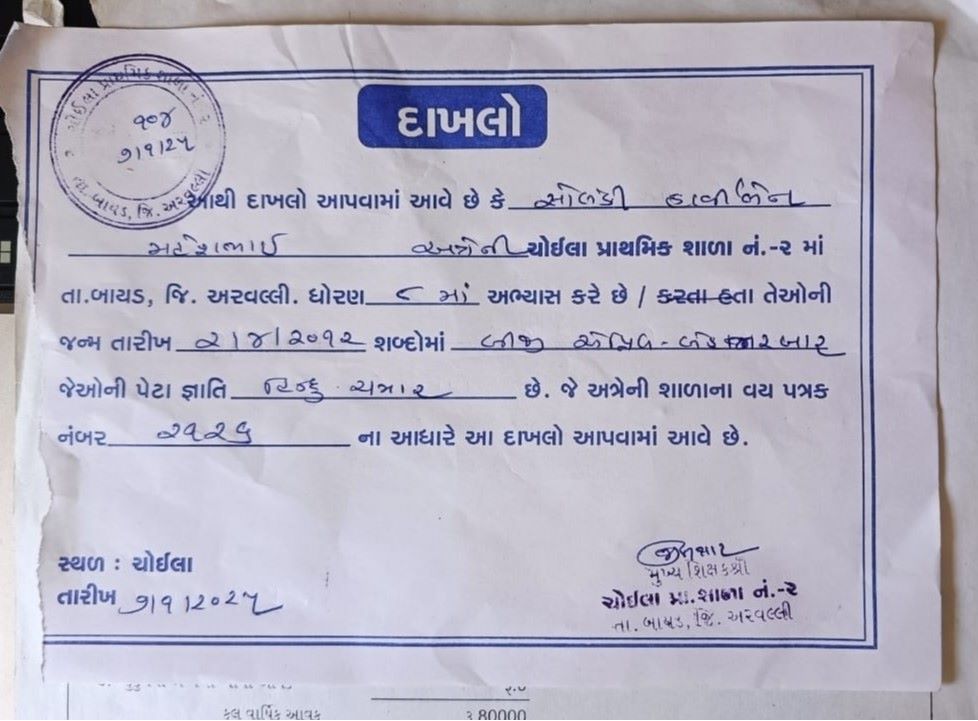 ચોઈલા પ્રાથમિક શાળા નં. ૨
૧૦૪
૭/૧/૨૫
તા. બાયડ, જિ. અરવલ્લી
દાખલો
આથી દાખલો આપવામાં આવે છે કે સોલંકી
અત્રેની ચોઈલા પ્રાથમિક શાળા નં.-૨ માં
તા.બાયડ, જિ. અરવલ્લી. ધોરણ ૮ માં અભ્યાસ કરે છે / કરતા હતા તેઓની
જન્મ તારીખ ૨/૪/૨૦૧૨ શબ્દોમાં બીજી એપ્રિલ-બે હજાર બાર
જેઓની પેટા જ્ઞાતિ હિન્દુ છે. જે અત્રેની શાળાના વય પત્રક
નંબર ૨૧૨૬ ના આધારે આ દાખલો આપવામાં આવે છે.
સ્થળ : ચોઈલા
તારીખ ૭/૧/૨૦૨૫
મુખ્ય શિક્ષકશ્રી
ચોઈલા પ્રા.શાળા નં.-૨
તા. બાયડ, જિ. અરવલ્લી
કુલ વાર્ષિક આવક
80000